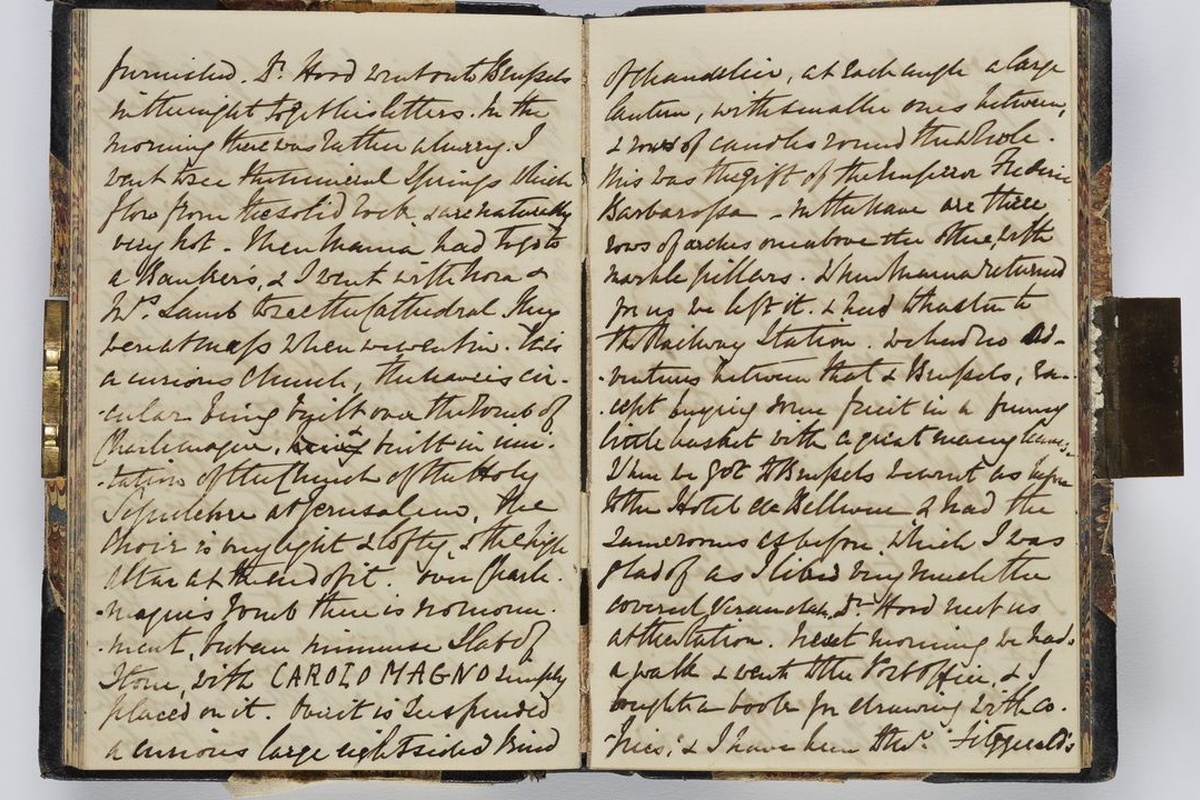 furnished. Dr. Hood went onto Brussels
in the night to get his letters. In the
morning there was rather a hurry. I
went to see the mineral Springs which
flow from the solid rock & are naturally
very hot. Then Mama had to go to
a Banker's, & I went with Nora &
Mrs. Lamb to see the Cathedral. They
were at mass when we went in. It is
a curious Church, the nave is cir-
-cular being built over the tomb of
Charlemagne, & built in imi-
-tation of the Church of the Holy
Sepulchre at Jerusalem, the
Choir is very light & lofty, & the high
Altar at the end of it. Over Charle-
-magne's tomb there is no monu-
-ment, but an immense Slab of
Stone, with CAROLO MAGNO simply
placed on it. Over it is suspended
a curious large eight sided kind
of chandelier, at each angle a large
lantern, with smaller ones between,
& rows of candles round the whole.
This was the gift of the Emperor Frederic
Barbarossa - In the nave are three
rows of arches one above the other, with
marble pillars. When Mama returned
for us we left it. & had to hasten to
the Railway Station. We had no ad-
-ventures between that & Brussels, ex-
-cept buying some fruit in a funny
little basket with a great many leaves.
When we got to Brussels we went as before
to the Hotel de Bellevue & had the
same rooms as before, which I was
glad of as I liked very much the
covered Verandah, Dr. Hood met us
at the station. Next morning we had
a walk & went to the Post Office, & I
bought a book for drawing with co-
-pies, & I have been Fitzgerald's